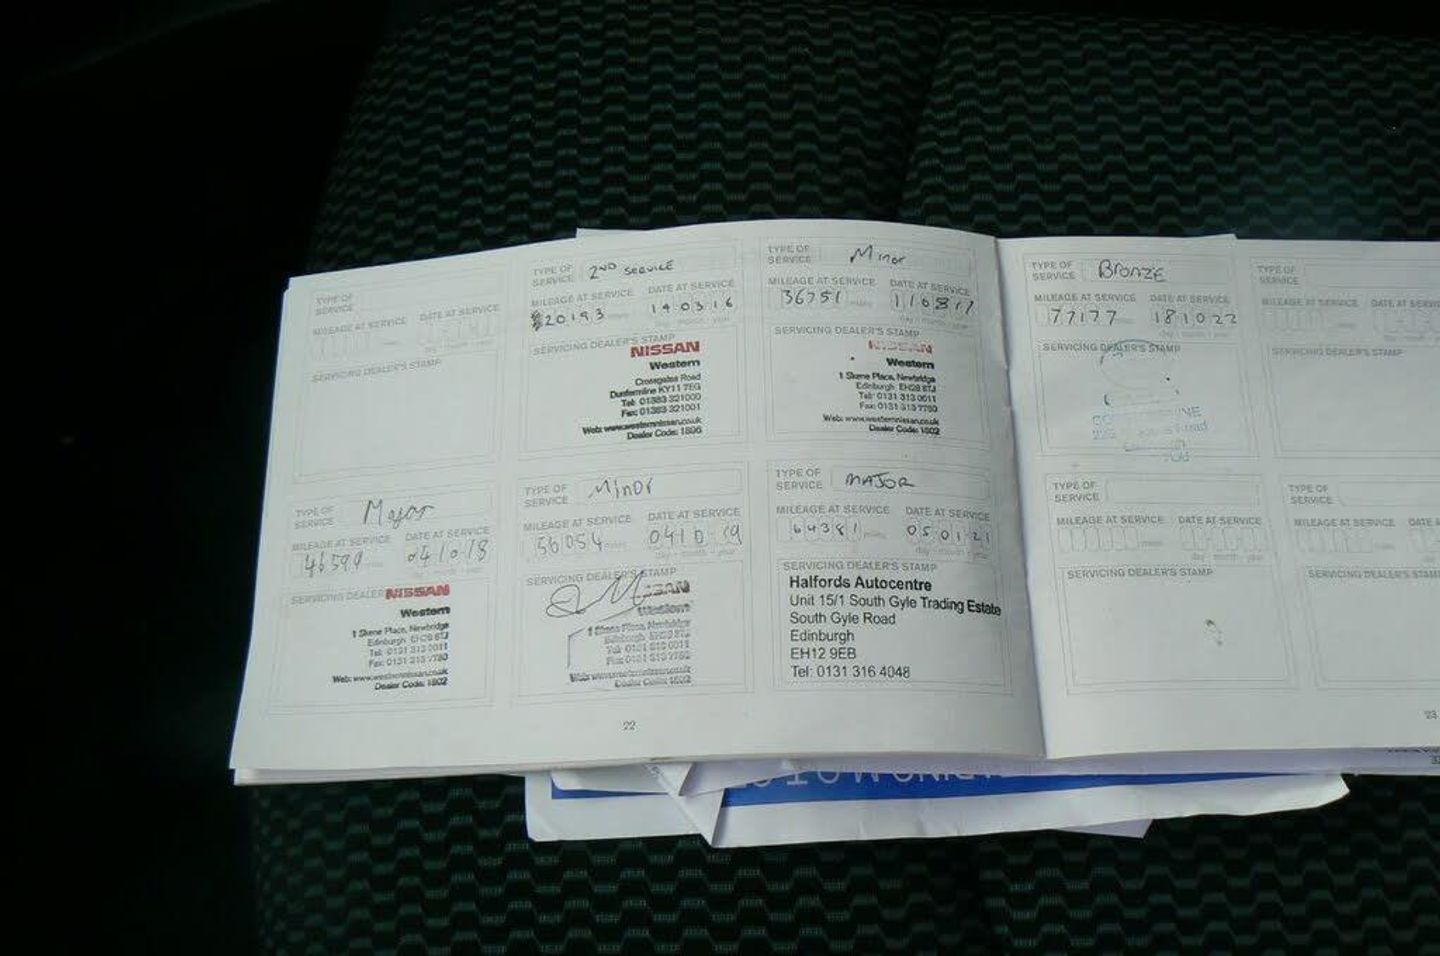 TYPE OF
SERVICE
MILEAGE AT SERVICE DATE AT SERVICE
SERVICING DEALER'S STAMP
TYPE OF
SERVICE 2ND SERVICE
MILEAGE AT SERVICE DATE AT SERVICE
20193 miles 140316
day - month - year
SERVICING DEALER'S STAMP
NISSAN
Western
Crossgates Road
Dunfermline KY11 7EG
Tel: 01383 321000
Fax: 01383 321001
Web: www.westernnissan.co.uk
Dealer Code: 1896
TYPE OF
SERVICE Minor
MILEAGE AT SERVICE DATE AT SERVICE
36751 miles 110817
day - month - year
SERVICING DEALER'S STAMP
NISSAN
Western
1 Skene Place, Newbridge
Edinburgh EH28 8TJ
Tel: 0131 313 0011
Fax: 0131 313 7780
Web: www.westernnissan.co.uk
Dealer Code: 1802
TYPE OF
SERVICE Major
MILEAGE AT SERVICE DATE AT SERVICE
46599 miles 041018
day - month - year
SERVICING DEALER
NISSAN
Western
1 Skene Place, Newbridge
Edinburgh EH28 8TJ
Tel: 0131 313 0011
Fax: 0131 313 7780
Web: www.westernnissan.co.uk
Dealer Code: 1802
TYPE OF
SERVICE Minor
MILEAGE AT SERVICE DATE AT SERVICE
56054 miles 041019
day - month - year
SERVICING DEALER'S STAMP
Western
1 Skene Place, Newbridge
Edinburgh EH28 8TJ
Tel: 0131 313 0011
Fax: 0131 313 7780
Web: www.westernnissan.co.uk
Dealer Code: 1802
TYPE OF
SERVICE MAJOR
MILEAGE AT SERVICE DATE AT SERVICE
64381 miles 050121
day - month - year
SERVICING DEALER'S STAMP
Halfords Autocentre
Unit 15/1 South Gyle Trading Estate
South Gyle Road
Edinburgh
EH12 9EB
Tel: 0131 316 4048
22
TYPE OF
SERVICE BRONZE
MILEAGE AT SERVICE DATE AT SERVICE
77177 miles 181022
day - month - year
SERVICING DEALER'S STAMP
TYPE OF
SERVICE
MILEAGE AT SERVICE
SERVICING DEALER'S STAMP
TYPE OF
SERVICE
MILEAGE AT SERVICE DATE AT SERVICE
miles
day - month - year
SERVICING DEALER'S STAMP
TYPE OF
SERVICE
MILEAGE AT SERVICE
miles
SERVICING DEALER'S STAMP
23